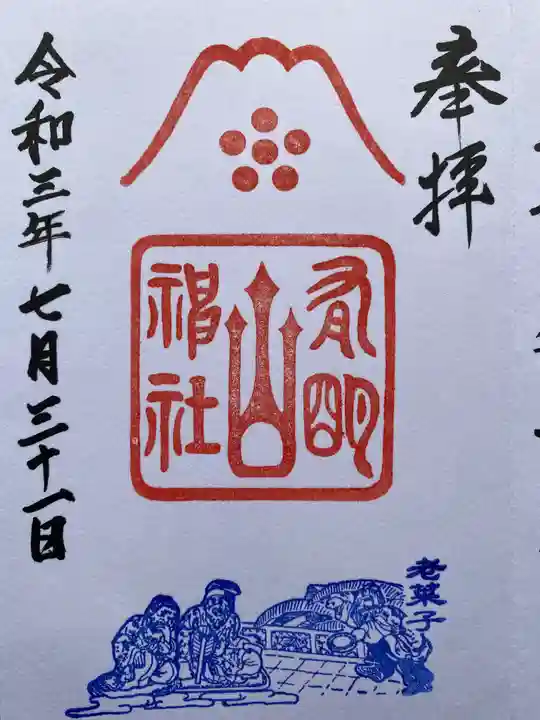 奉拝
有明
山
神社
令和三年七月三十一日
老莱子